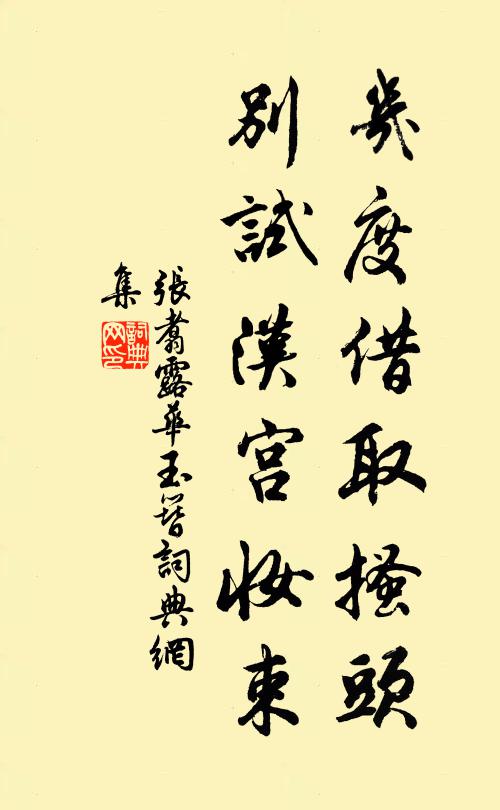 幾度借取搔頭
別試漢宮妝束
張翥露華玉簪詞典網
集
詞典網印